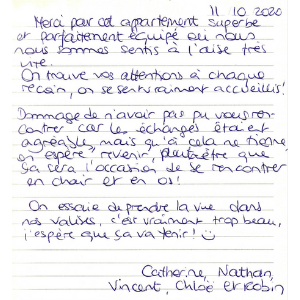 11 10 2020
Merci pour cet appartement superbe
et parfaitement équipé où nous
nous sommes sentis à l'aise très
vite.
On trouve vos attentions à chaque
recoin, on se sent vraiment accueillis!
Dommage de n'avoir pas pu vous ren-
contrer car les échanges étaient
agréables, mais qu'à cela ne tienne,
on espère revenir, peut-être que
ça sera l'occasion de se rencontrer
en chair et en os!
On essaie de prendre la vue dans
nos valises, c'est vraiment trop beau,
j'espère que ça va tenir! ☺
Catherine, Nathan,
Vincent, Chloé et Robin